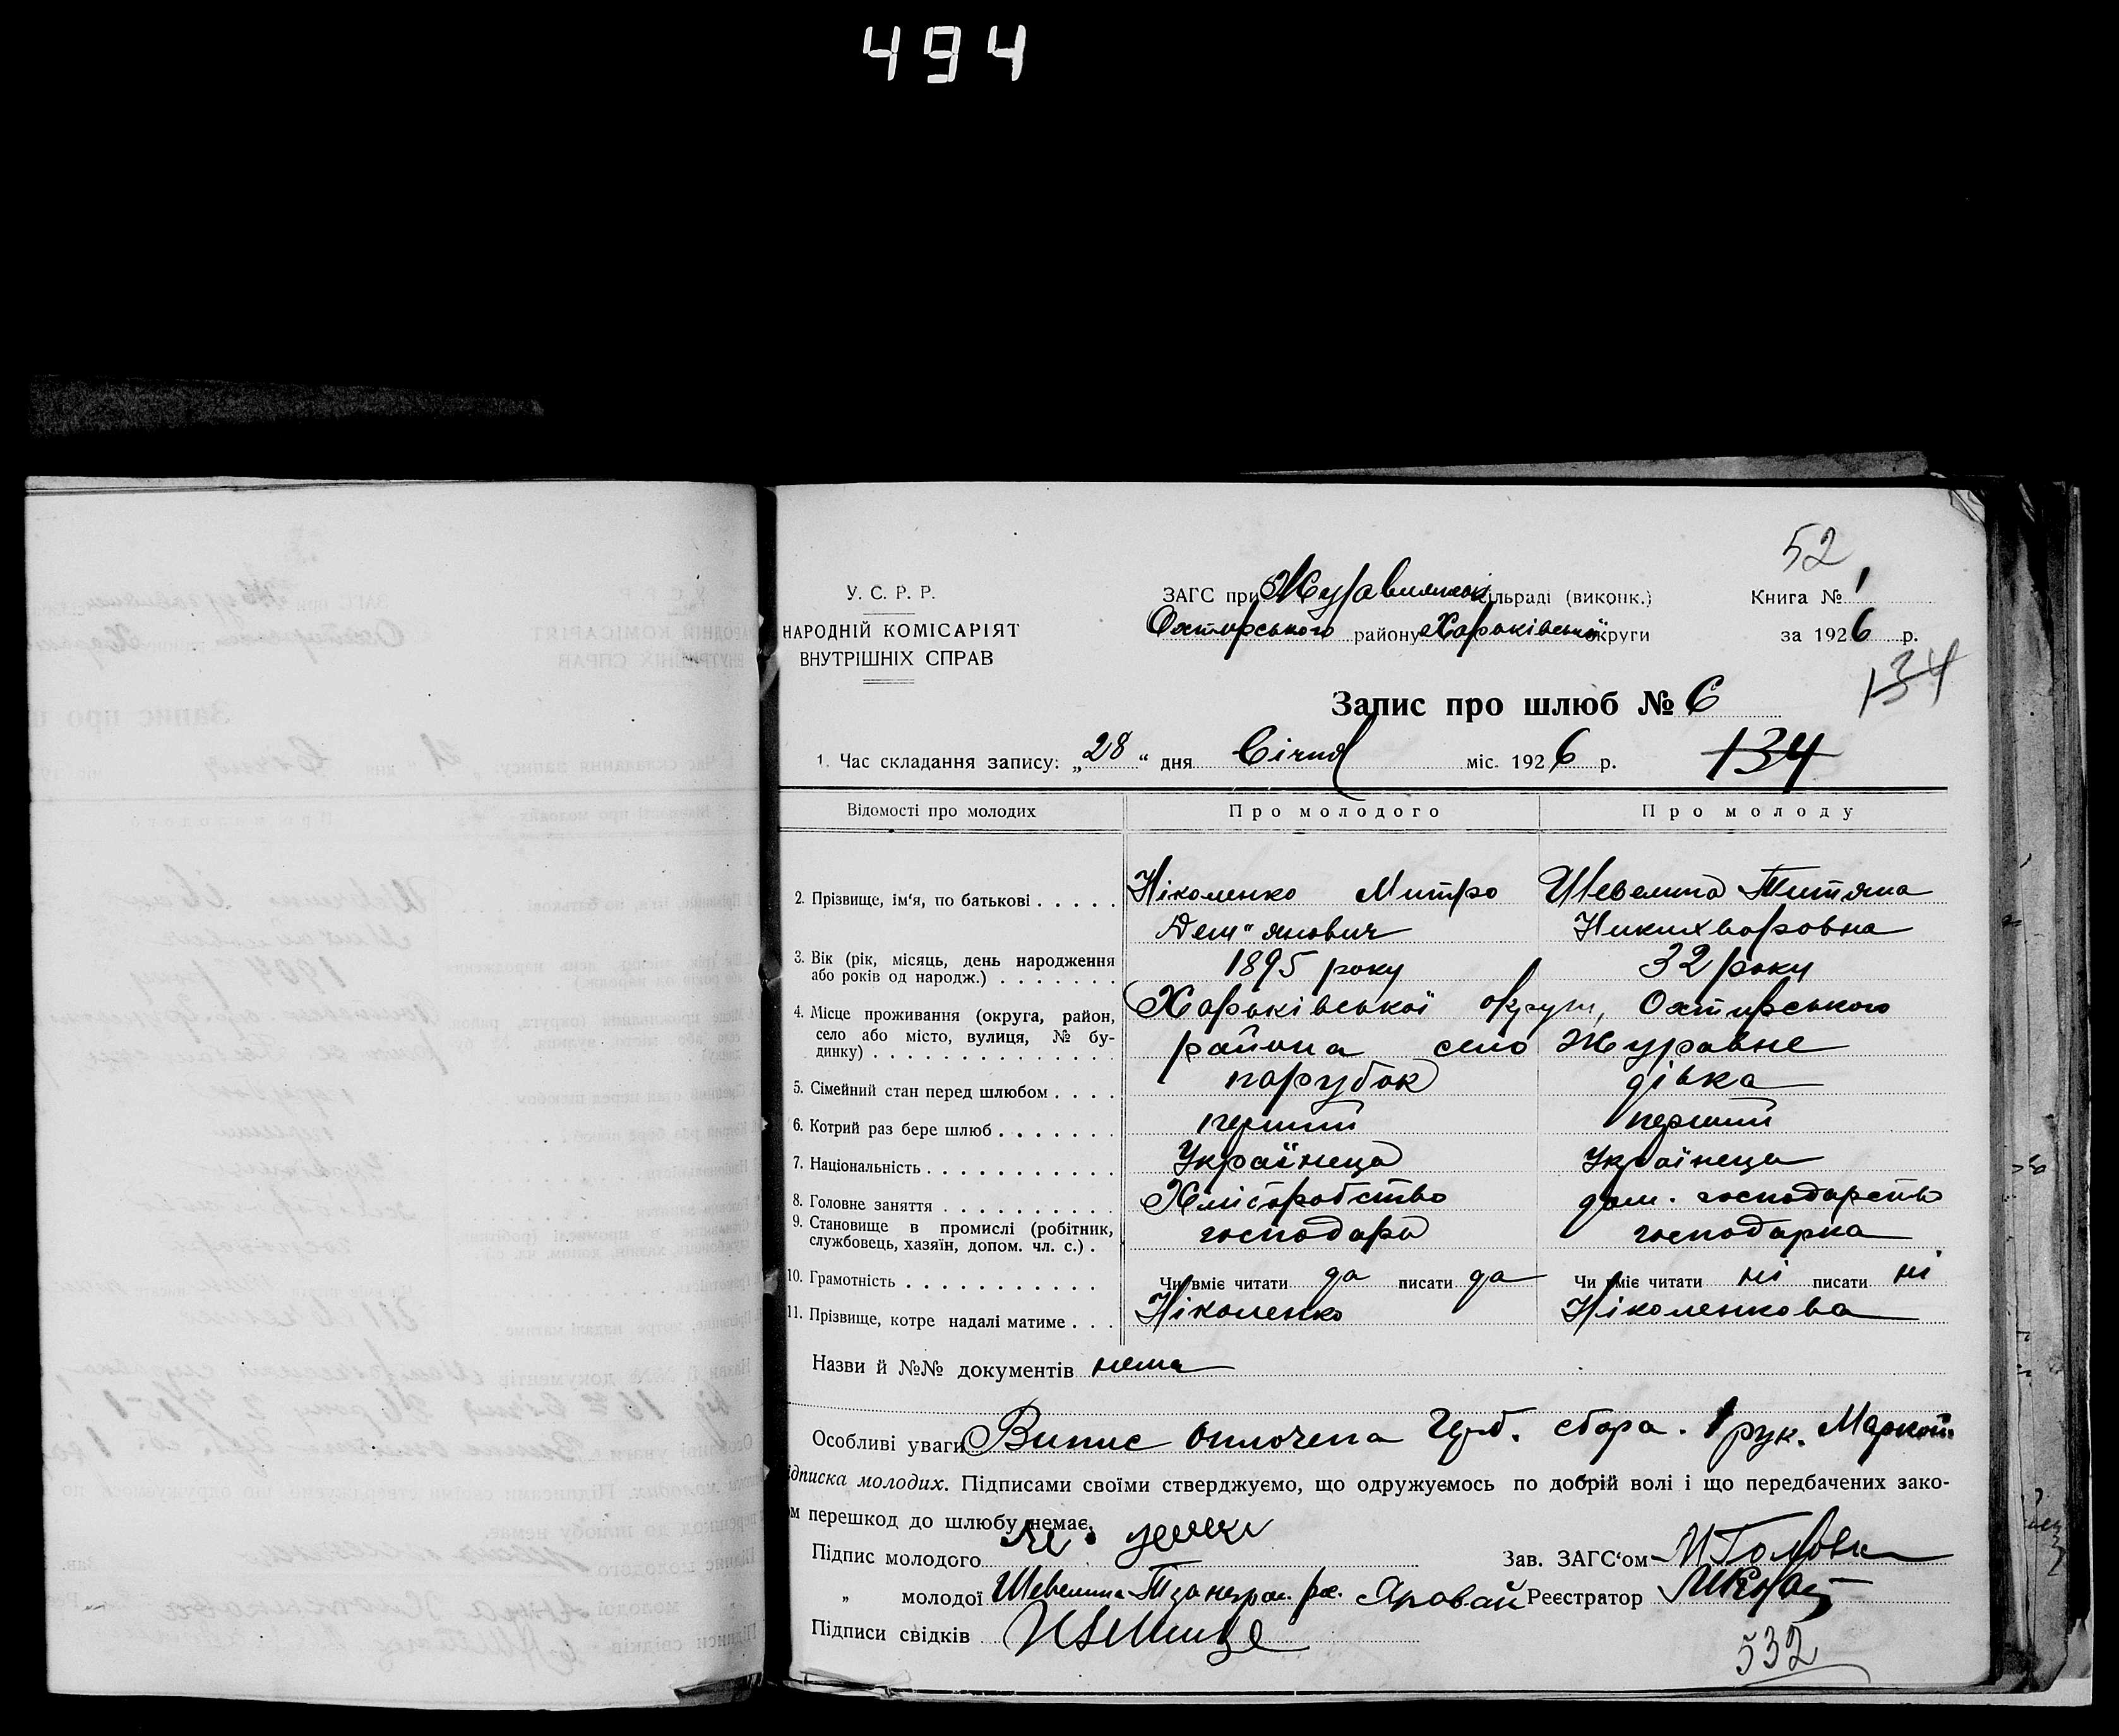 494
52
У. С. Р. Р.
НАРОДНІЙ КОМІСАРІЯТ
ВНУТРІШНІХ СПРАВ
ЗАГС при Журавлянськ сільраді (виконк.)
Охтирського району Харьківської округи
Книга № 1
за 1926 р.
134
Запис про шлюб № 6
1. Час складання запису: „28" дня Січня міс. 1926 р.
134
Відомості про молодих Про молодого Про молоду
2. Прізвище, ім'я, по батькові . . . . . Ніколенко Митро Шевелина Титяна
Дем"янович Никихворовна
3. Вік (рік, місяць, день народження
або років од народж.) . . . . . . . 1895 року 32 року
4. Місце проживання (округа, район, Харьківської округи, Охтирського
село або місто, вулиця, № бу-
динку) . . . . . . . . . . . . . . района село Журавне
5. Сімейний стан перед шлюбом . . . . парубок дівка
6. Котрий раз бере шлюб . . . . . . . перший перший
7. Національність . . . . . . . . . . . Українець Українець
8. Головне заняття . . . . . . . . . . Хліборобство дом. господарство
9. Становище в промислі (робітник,
службовець, хазяїн, допом. чл. с.) . господарь господарка
10. Грамотність . . . . . . . . . . Чи вміє читати да писати да Чи вміє читати ні писати ні
11. Прізвище, котре надалі матиме . . . Ніколенко Ніколенкова
Назви й №№ документів нема
Особливі уваги Випис оплочена Герб. сбора. 1 рук. Маркой
ідписка молодих. Підписами своїми стверджуємо, що одружуємось по добрій волі і що передбачених зако-
ом перешкод до шлюбу немає.
Підпис молодого
Зав. ЗАГС'ом И Головк
„ молодої Шевелина Яровай Реєстратор
Підписи свідків
532